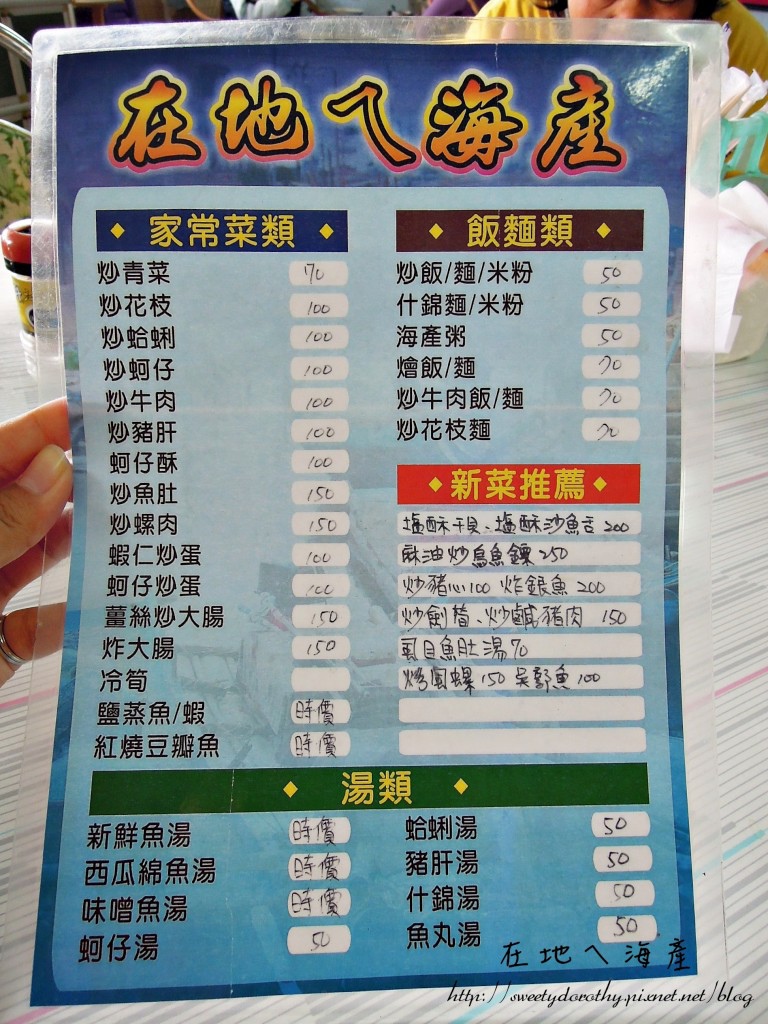 在地ㄟ海產
家常菜類
炒青菜 70
炒花枝 100
炒蛤蜊 100
炒蚵仔 100
炒牛肉 100
炒豬肝 100
蚵仔酥 100
炒魚肚 150
炒螺肉 150
蝦仁炒蛋 100
蚵仔炒蛋 100
薑絲炒大腸 150
炸大腸 150
冷筍
鹽蒸魚/蝦 時價
紅燒豆瓣魚 時價
飯麵類
炒飯/麵/米粉 50
什錦麵/米粉 50
海產粥 50
燴飯/麵 70
炒牛肉飯/麵 70
炒花枝麵 70
新菜推薦
塩酥干貝、塩酥沙魚舌 200
麻油炒烏魚鰾 250
炒豬心100 炸銀魚 200
炒劍筍、炒鹹豬肉 150
虱目魚肚湯70
烤鳳螺150 吳郭魚100
湯類
新鮮魚湯 時價
西瓜綿魚湯 時價
味噌魚湯 時價
蚵仔湯 50
蛤蜊湯 50
豬肝湯 50
什錦湯 50
魚丸湯 50
在地ㄟ海產
http://sweetydorothy.pixnet.net/blog